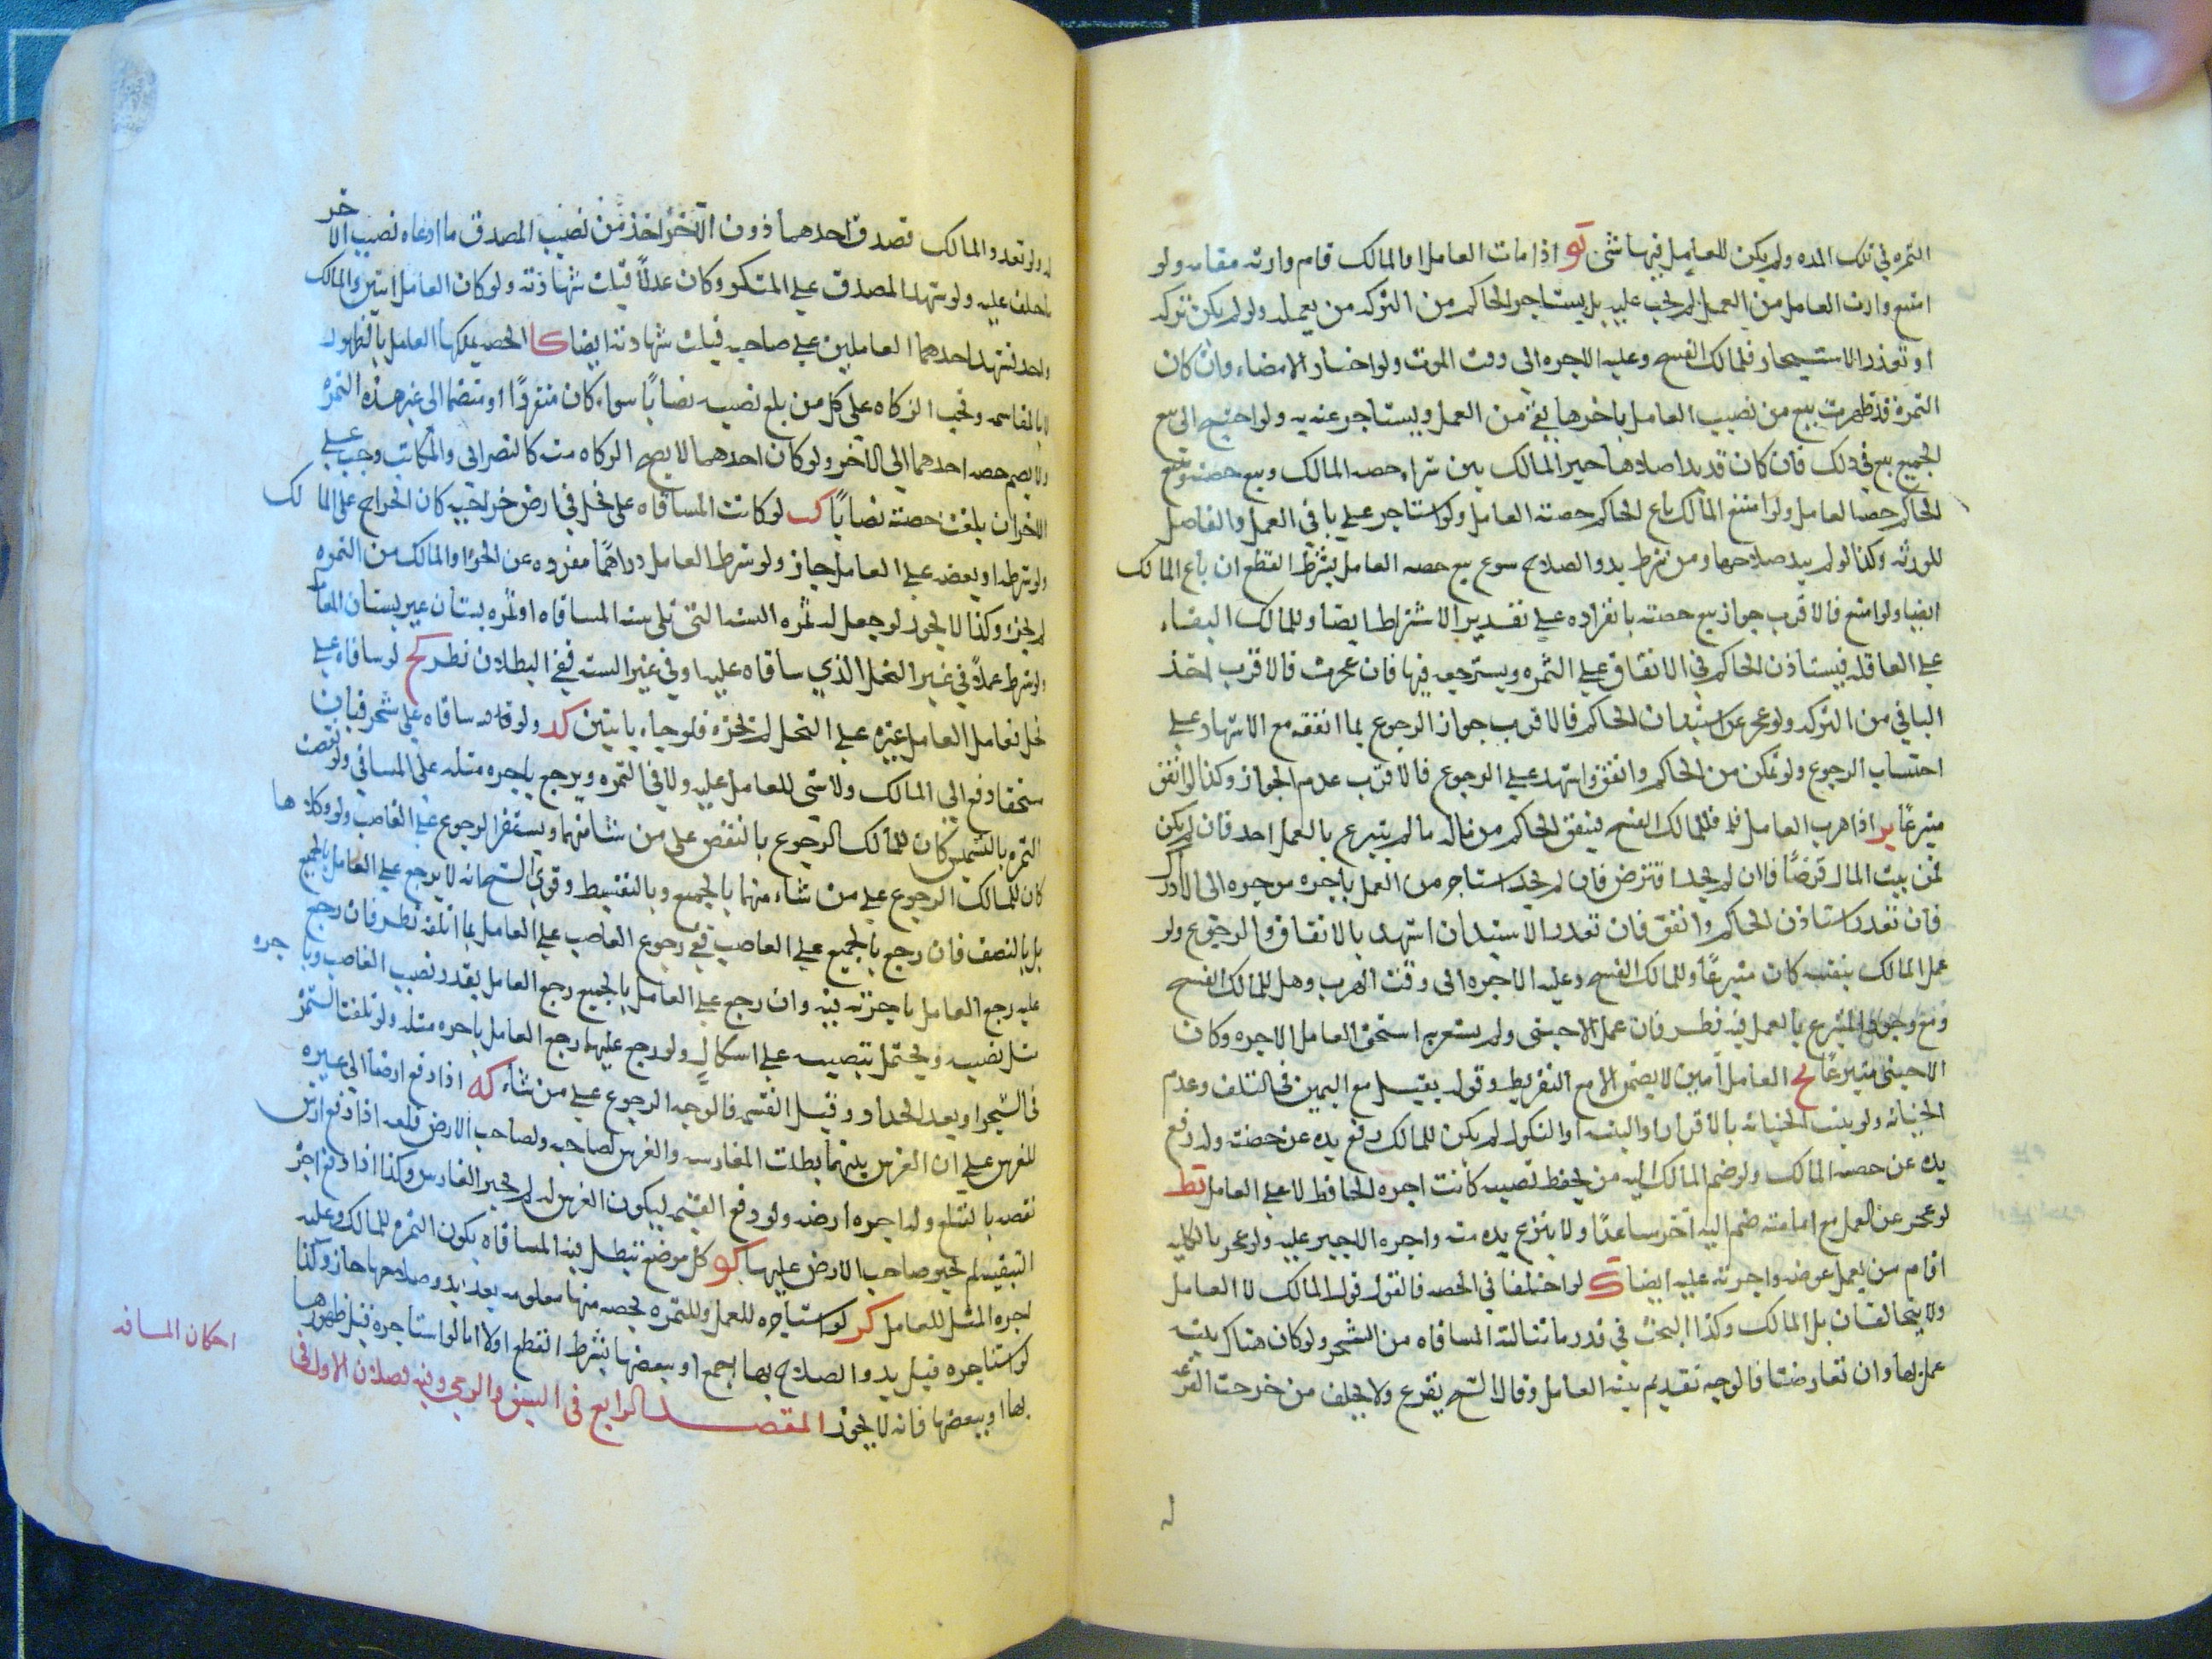 الثمره في تلك المده ولم يكن للعامل فيها شئ يو اذا مات العامل او المالك قام وارثه مقامه ولو
امتنع وارث العامل من العمل لم يجب عليه بل يستاجر الحاكم من التركه من يعمله ولو لم يكن تركه
او تعذر الاستيجار فللمالك الفسخ وعليه الاجره الى وقت الموت ولو اختار الامضاء وان كان
الثمرة قد ظهرت بيع من نصيب العامل باخرها يفى من العمل ويستاجر عنه به ولو احتيج الى بيع
الجميع بيع في ذلك فان كان قد بدا صلاحها خير المالك بين شراء حصه المالك وبيع حصته وتبيع
الحاكم حصه العامل ولو امتنع المالك باع الحاكم حصته العامل ولو استاجر على باقي العمل والفاضل
للورثه وكذا لو لم يبد صلاحها ومن شرط بدو الصلاح سوع بيع حصه العامل بشرط القطع ان باع المالك
ايضا ولو امتنع فالاقرب جواز بيع حصته بانفراده على تقدير الاشتراط ايضا وللمالك البقاء
على العاقله فيستاذن الحاكم في الانفاق على الثمره ويسترجعه فيها فان عجزت فالاقرب اخذ
الباقي من التركه ولو عجز عن استيذان الحاكم فالاقرب جواز الرجوع بما انفقه مع الاشهاد على
احتساب الرجوع ولو تمكن من الحاكم وانفق واشهد على الرجوع فالاقرب عدم الجواز وكذا لو انفق
متبرعًا يز اذا هرب العامل فللمالك الفسخ فينفق الحاكم من ماله ما لم يتبرع بالعمل احد فان لم يكن
فمن بيت المال قرضًا فان لم يجد اقترض فان لم يجد استاجر من العمل باجره موجره الى الادراك
فان تعذر استاذن الحاكم وانفق فان تعذر الاستيذان اشهد بالانفاق والرجوع ولو
عمل المالك بنفسه كان متبرعًا وللمالك الفسخ وعليه الاجره الى وقت الهرب وهل للمالك الفسخ
ومع وجود المتبرع بالعمل فيه نظر فان عمل الاجنبى ولم يشعر به استحق العامل الاجره وكان
الاجنبى متبرعًا يح العامل امين لا يضمن الا مع التفريط وقوله يقبل مع اليمين في التلف وعدم
الخيانه ولو يثبت الخيانه بالاقرار او البينه او النكول لم يكن للمالك رفع يده عن حصته وله رفع
يده عن حصه المالك ولو ضم المالك اليه من يحفظ نصيبه كانت اجره الحافظ لا على العامل يط
لو عجز عن العمل مع امانته ضم اليه اخر ساعدًا ولا ينزع يده منه واجره الاجير عليه ولو عجز بالكليه
اقام من يعمل عوضه واجرته عليه ايضا ك لو اختلفا في الحصه فالقول قول المالك لا العامل
ولا يتحالفان بل المالك وكذا البحث في قدر ما تناوله المساقاه من الشجر ولو كان هناك بينه
عمل بها وان تعارضتا فالوجه تقديم بينه العامل وقال الشيخ يقرع ولا يحلف من خرجت القرعه
له
له ولو تعدد المالك فصدق احدهما دون الآخر اخذ من نصيب المصدق ما ادعاه نصيب الاخر
باحلف عليه ولو شهد المصدق على المنكر وكان عدلًا قبلت شهادته ولو كان العامل اثنين والمالك
واحد فشهد احدهما العاملين على صاحبه قبلت شهادته ايضا كا الحصه يملكها العامل بالظهور
لا بالمقاسمه وتجب الزكاه على كل من بلغ نصيبه نصابًا سواء كان منفردًا او منضما الى غير هذه الثمره
ولا يضم حصه احدهما الى الآخر ولو كان احدهما لا يصح الزكاه منه كالنصرانى والمكاتب وجب على
الاخر ان بلغت حصته نصابًا كب لو كانت المساقاه على نخل في ارض خراجيه كان الخراج على المالك
ولو شرطه او بعضه على العامل جاز ولو شرط العامل دراهمًا مفرده عن الجزء او المالك من الثمره
لم يجز وكذا لا يجوز لو جعل له ثمره السنه التى تلى سنه المساقاه او ثمره بستان غير بستان المعامله
ولو شرط عملًا في غير النخل الذي ساقاه عليه او في غير السنه ففي البطلان نظر كج لو ساقاه على
نخل فعامل العامل غيره على النخل لم يجز فلو جاء باثنين كد ولو قال له ساقاه على شجر فبان
مستحقا دفع الى المالك ولا شى للعامل عليه ولا في الثمره ويرجع باجره مثله على المساقى ولو نقصت
الثمره بالتشميس كان للمالك الرجوع بالنقص على من شاء منهما ويستقر الرجوع على الغاصب ولو وكلاها
كان للمالك الرجوع على من شاء منهما بالجميع وبالتقسيط وقوى الشيخ انه لا يرجع على العامل بالجميع
بل بالنصف فان رجع بالجميع على الغاصب ففي رجوع الغاصب على العامل بما اتلفه نظر فان رجع
عليه رجع العامل باجرته فيه وان رجع على العامل بالجميع رجع العامل بقدر نصيب الغاصب وباجره
مثل نصيبه ويحتمل بنصيبه على اشكال ولو رجع عليهما رجع العامل باجره مثله ولو تلفت الثمر
في الشجر او بعد الجداد وقبل القسمه فالوجه الرجوع على من شاء كه اذا دفع ارضا الى غيره
للغرس على ان الغرس بينهما بطلت المغارسه والغرس لصاحبه ولصاحب الارض قلعه اذا دفع ارش
نقصه بالقلع وله اجره ارضه ولو دفع القيمه ليكون الغرس له لم يجبر الغارس وكذا اذا دفع اجر
التبقيه لم يجبر صاحب الارض عليها كو كل موضع تبطل فيه المساقاه يكون الثمر للمالك وعليه
اجره المثل للعامل كز لو استاجره للعمل وللثمره بحصه منها معلومه بعد بدو صلاحها جاز وكذا
لو استاجره قبل بدو الصلاح بها اجمع او ببعضها بشرط القطع اولا اما لو استاجره قبل ظهورها
بها او ببعضها فانه لا يجوز المقصد الرابع في السبق والرمي وفيه فصلان الاول في
احكان المساقه